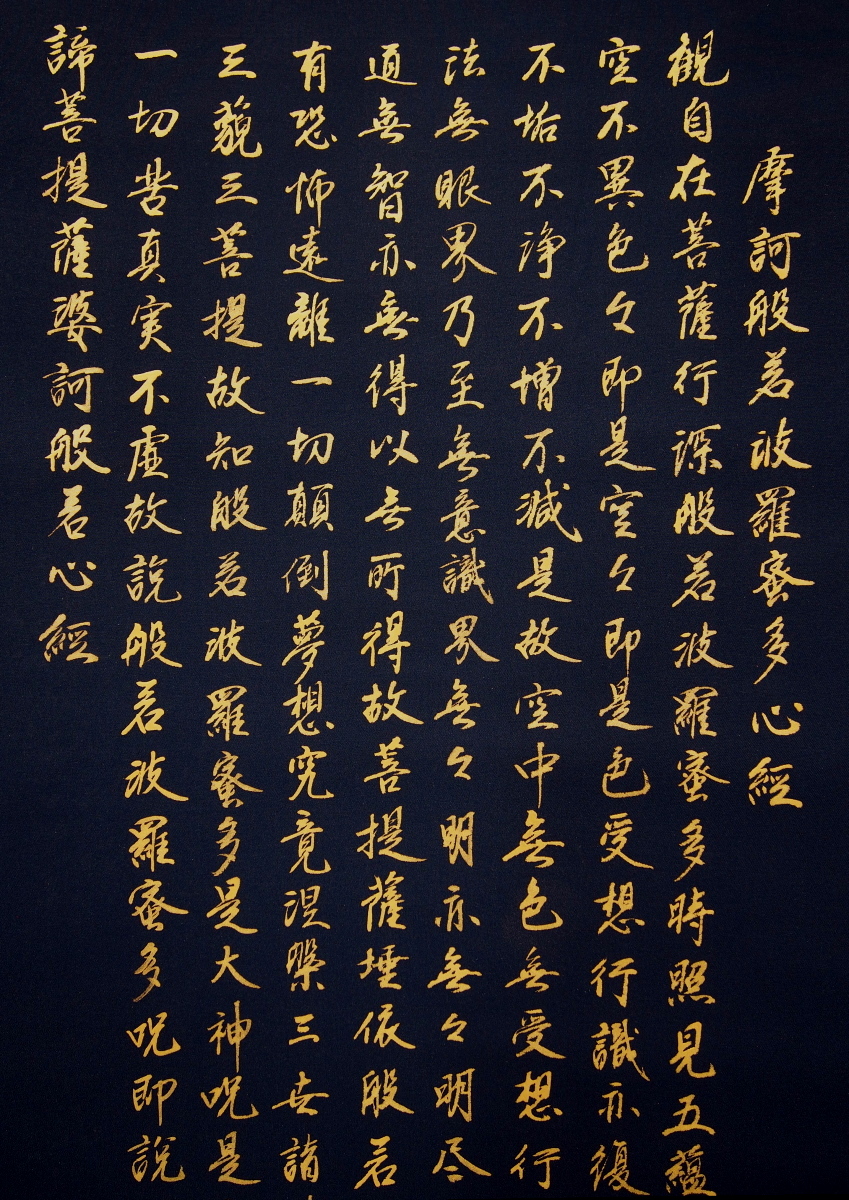 摩訶般若波羅蜜多心經
観自在菩薩行深般若波羅蜜多時照見五蘊
空不異色々即是空々即是色受想行識亦復
不垢不浄不増不減是故空中無色無受想行
法無眼界乃至無意識界無々明亦無々明尽
道無智亦無得以無所得故菩提薩埵依般若
有恐怖遠離一切顛倒夢想究竟涅槃三世諸
三藐三菩提故知般若波羅蜜多是大神呪是
一切苦真実不虚故説般若波羅蜜多呪即説
諦菩提薩婆訶般若心經